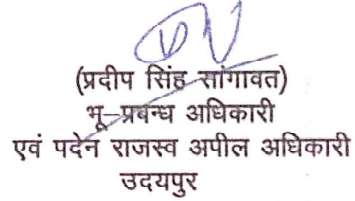 (प्रदीप सिंह सांगावत)
भू–प्रबन्ध अधिकारी
एवं पदेन राजस्व अपील अधिकारी
उदयपुर